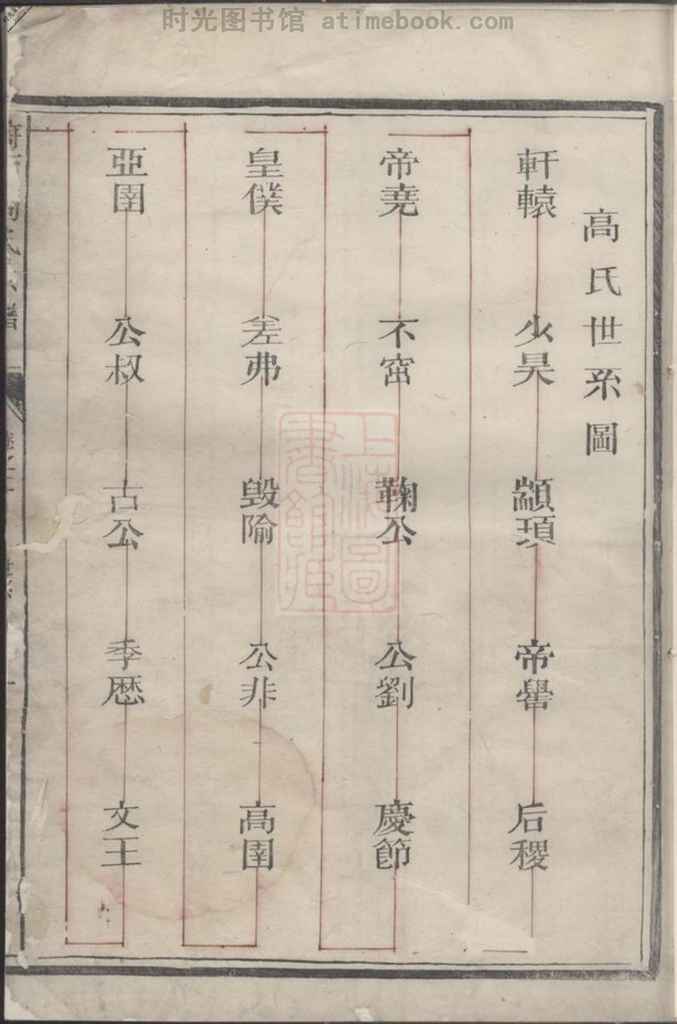 时光图书馆 atimebook.com
高氏世系圖
軒轅
少昊
顓頊
帝嚳
后稷
帝堯
不窋
鞠公
公劉
慶節
皇僕
差弗
毁隃
公非
高圉
亞圉
公叔
古公
季歷
文王
上海圖書館藏